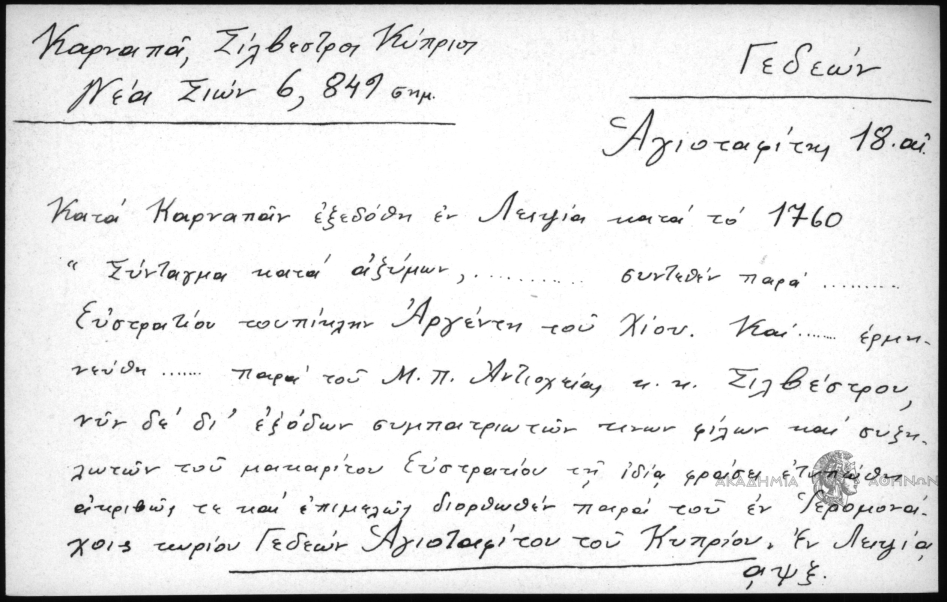 Καρναπᾶ, Σίλβεστρος Κύπριος
Νέα Σιών 6, 849 σημ.
Γεδεών
Ἁγιοταφίτης 18. αἰ.
Κατά Καρναπᾶν ἐξεδόθη ἐν Λειψία κατά τό 1760
" Σύνταγμα κατά ἀζύμων, ........... συντεθέν παρά ........
Εὐστρατίου τουπίκλην Ἀργέντη τοῦ Χίου. Καί ...... ἑρμη-
νεύθη ...... παρά τοῦ Μ. Π. Ἀντιοχείας κ. κ. Σιλβέστρου,
νῦν δέ δι' ἐξόδων συμπατριωτῶν τινων φίλων καί συζη-
λωτῶν τοῦ μακαρίτου Εὐστρατίου τῇ ἰδίᾳ φράσει ἐτυπώθη
ἀκριβῶς τε καί ἐπιμελῶς διορθωθέν παρά τοῦ ἐν Ἱερομονά-
χοις κυρίου Γεδεών Ἁγιοταφίτου τοῦ Κυπρίου. Ἐν Λειψίᾳ
αψξ.
ΑΚΑΔΗΜΙΑ ΑΘΗΝΩΝ